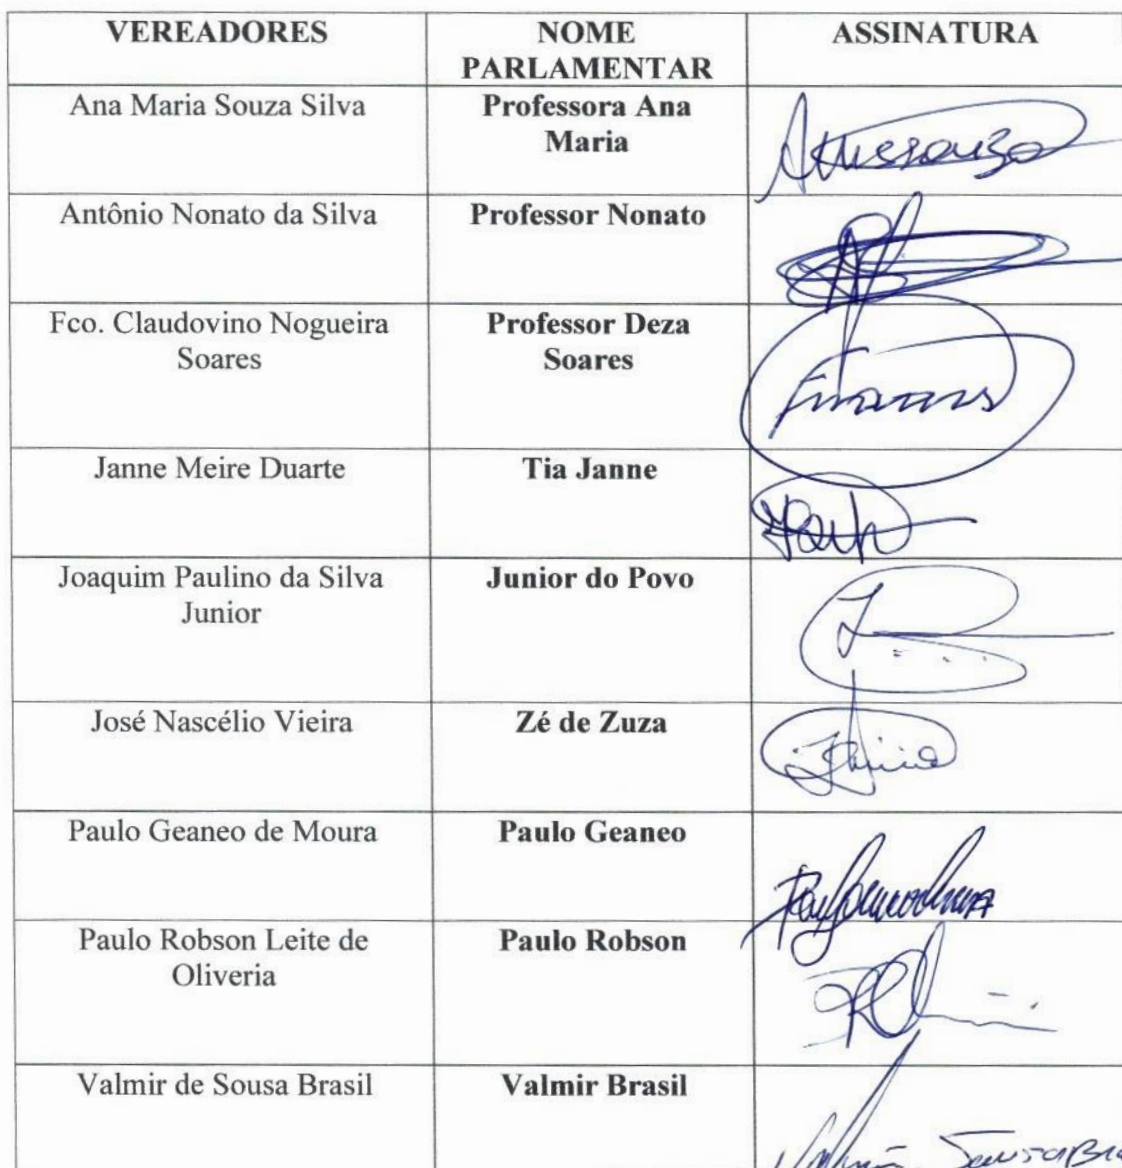 VEREADORES
NOME
PARLAMENTAR
ASSINATURA
Ana Maria Souza Silva
Professora Ana
Maria
Antônio Nonato da Silva
Professor Nonato
Fco. Claudovino Nogueira
Soares
Professor Deza
Soares
Janne Meire Duarte
Tia Janne
Joaquim Paulino da Silva
Junior
Junior do Povo
José Nascélio Vieira
Zé de Zuza
Paulo Geaneo de Moura
Paulo Geaneo
Paulo Robson Leite de
Oliveria
Paulo Robson
Valmir de Sousa Brasil
Valmir Brasil